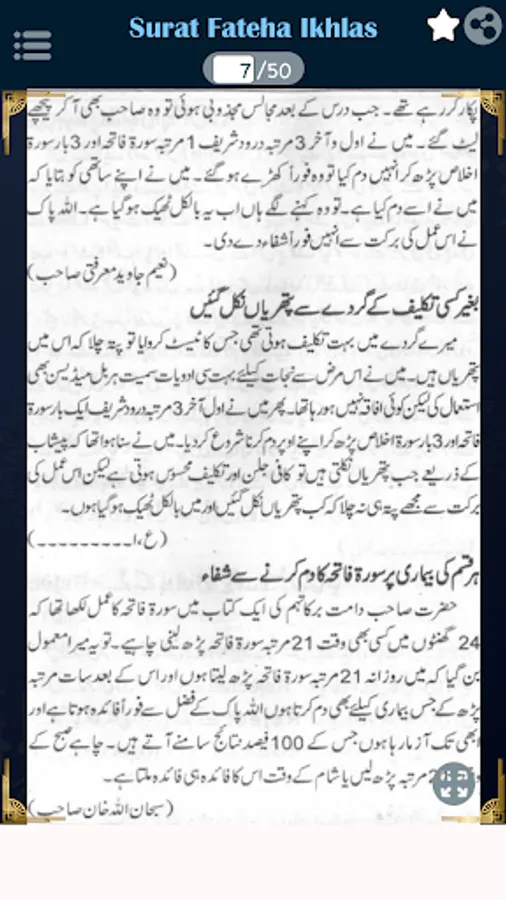 Surat Fateha Ikhlas
7/50
پکار کر رہے تھے۔ جب درس کے بعد مجالس مجذوبی ہوئی تو وہ صاحب بھی آ کر پیچھے
لیٹ گئے۔ میں نے اول و آخر 3 مرتبہ درود شریف 1 مرتبہ سورۃ فاتحہ اور 3 بار سورۃ
اخلاص پڑھ کر انہیں دم کیا تو وہ فوراً کھڑے ہو گئے۔ میں نے اپنے ساتھی کو بتایا کہ
میں نے اسے دم کیا ہے۔ تو وہ کہنے لگے ہاں اب یہ بالکل ٹھیک ہو گیا ہے۔ اللہ پاک
نے اس عمل کی برکت سے انہیں فوراً شفاء دے دی۔
(نعیم جاوید معرفتی صاحب)
بغیر کسی تکلیف کے گردے سے پتھریاں نکل گئیں
میرے گردے میں بہت تکلیف ہوتی تھی جس کا ٹیسٹ کروایا تو پتہ چلا کہ اس میں
پتھریاں ہیں۔ میں نے اس مرض سے نجات کیلئے بہت سی ادویات سمیت ہربل میڈیسن بھی
استعمال کی لیکن کوئی افاقہ نہیں ہو رہا تھا۔ پھر میں نے اول آخر 3 مرتبہ درود شریف ایک بار سورۃ
فاتحہ اور 3 بار سورۃ اخلاص پڑھ کر اپنے اوپر دم کرنا شروع کر دیا۔ میں نے سنا ہوا تھا کہ پیشاب
کے ذریعے جب پتھریاں نکلتی ہیں تو کافی جلن اور تکلیف محسوس ہوتی ہے لیکن اس عمل کی
برکت سے مجھے پتہ ہی نہ چلا کہ کب پتھریاں نکل گئیں اور میں بالکل ٹھیک ہو گیا ہوں۔
(ع،ا۔۔۔۔۔۔۔۔۔۔)
ہر قسم کی بیماری پر سورۃ فاتحہ کا دم کرنے سے شفاء
حضرت صاحب دامت برکاتہم کی ایک کتاب میں سورۃ فاتحہ کا عمل لکھا تھا کہ
24 گھنٹوں میں کسی بھی وقت 21 مرتبہ سورۃ فاتحہ پڑھ لینی چاہیے۔ تو یہ میرا معمول
بن گیا کہ میں روزانہ 21 مرتبہ سورۃ فاتحہ پڑھ لیتا ہوں اور اس کے بعد سات مرتبہ
پڑھ کے جس بیماری کیلئے بھی دم کرتا ہوں اللہ پاک کے فضل سے فوراً فائدہ ہوتا ہے اور
ابھی تک آزما رہا ہوں جس کے 100 فیصد نتائج سامنے آتے ہیں۔ چاہے صبح کے
مرتبہ پڑھ لیں یا شام کے وقت اس کا فائدہ ہی فائدہ ملتا ہے۔
(سبحان اللہ خان صاحب)